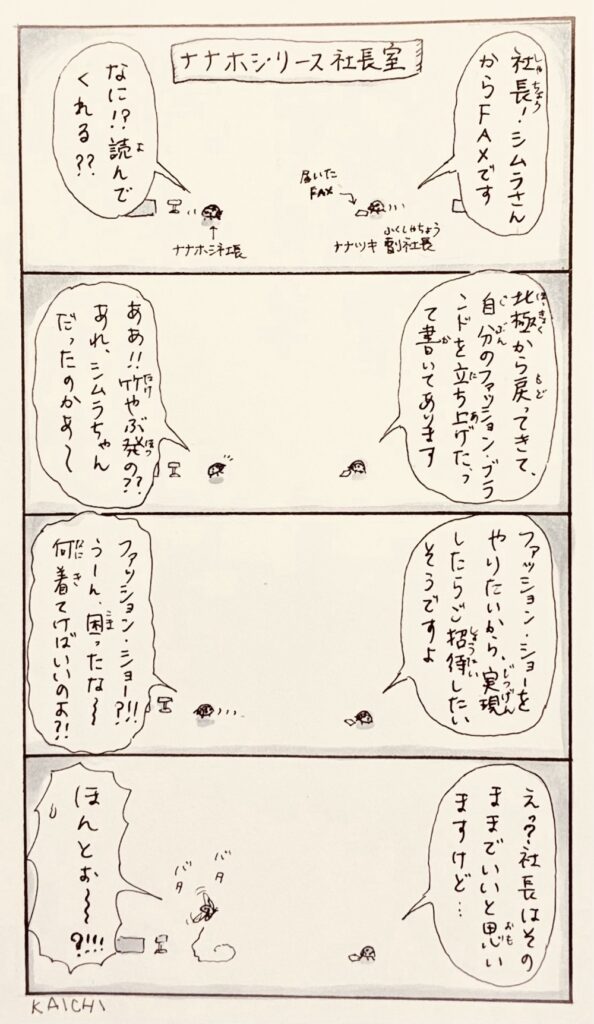 ナナホシ・リース社長室
社長!シムラさん
からFAXです
なに!?読んで
くれる??
届いた
FAX
ナナツキ副社長
ナナホシ社長
北極から戻ってきて、
自分のファッション・ブラ
ンドを立ち上げた、っ
て書いてあります
ああ!!竹やぶ発の??
あれ、シムラちゃん
だったのかあ〜
ファッション・ショーを
やりたいから、実現
したらご招待したい
そうですよ
ファッション・ショー?!!
うーん、困ったな〜
何着てけばいいのよ?!
えっ?社長はその
ままでいいと思い
ますけど…
ほんとお〜〜?!!!
バタ
バタ
KAICHI